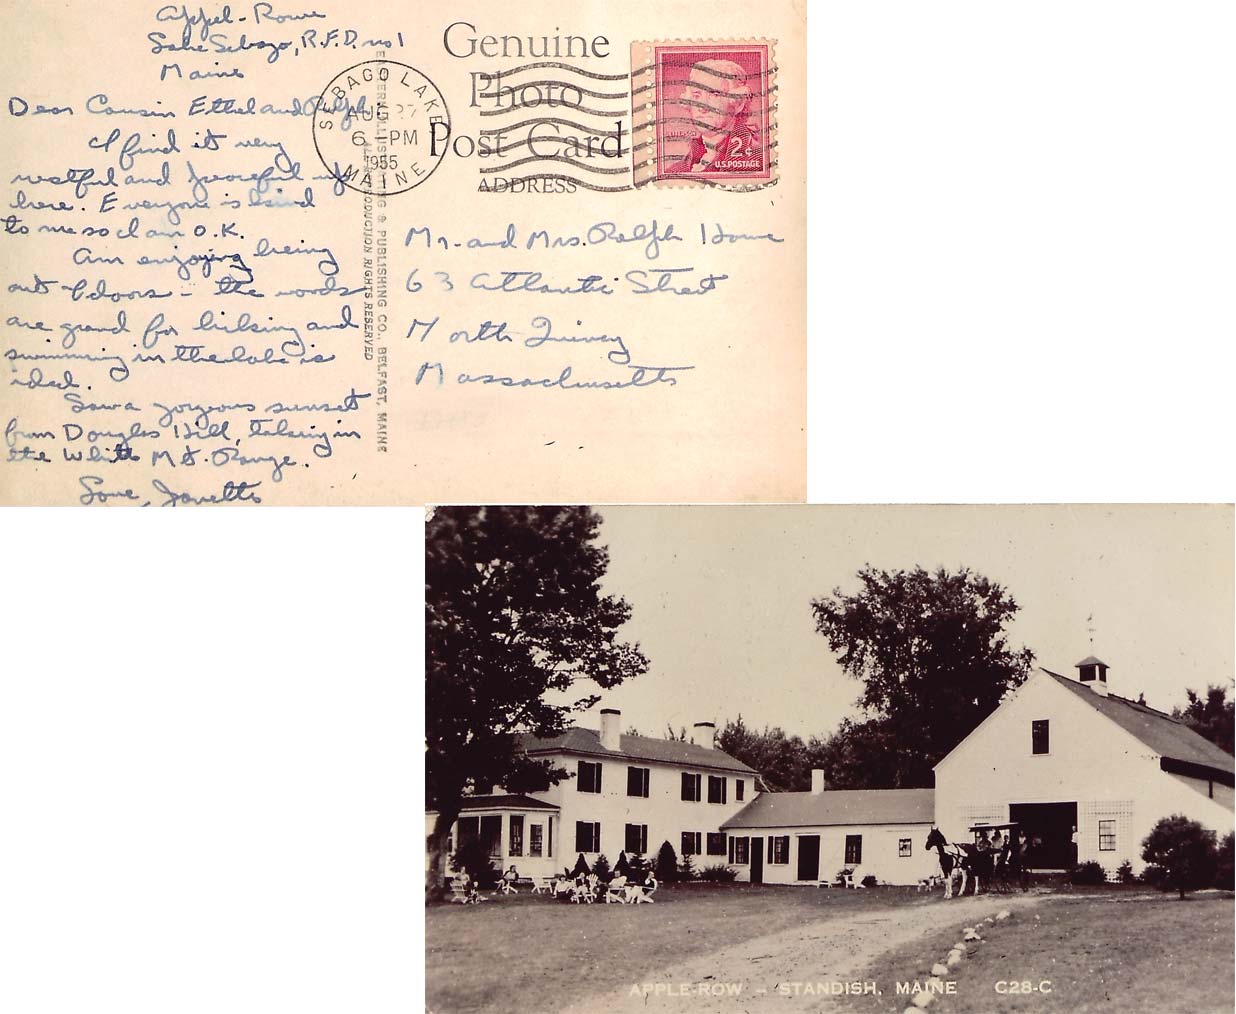 Appel-Rowe
Lake Sebago, R.F.D. no 1
Maine
Dear Cousin Ethel and Ralph
I find it very
restful and peaceful up
here. Everyone is kind
to me so I am O.K.
Am enjoying being
out-of-doors - the woods
are grand for hiking and
swimming in the lake is
ideal.
Saw a gorgeous sunset
from Douglas Hill, taking in
the White Mt. Range.
Love, Janette
Genuine
Photo
Post Card
ADDRESS
SEBAGO LAKE
AUG 27
6 - PM
1955
MAINE
2¢
U.S. POSTAGE
& PUBLISHING CO., BELFAST, MAINE
REPRODUCTION RIGHTS RESERVED
Mr. and Mrs. Ralph Howe
63 Atlantic Street
North Quincy
Massachusetts
APPLE-ROW - STANDISH, MAINE C28-C